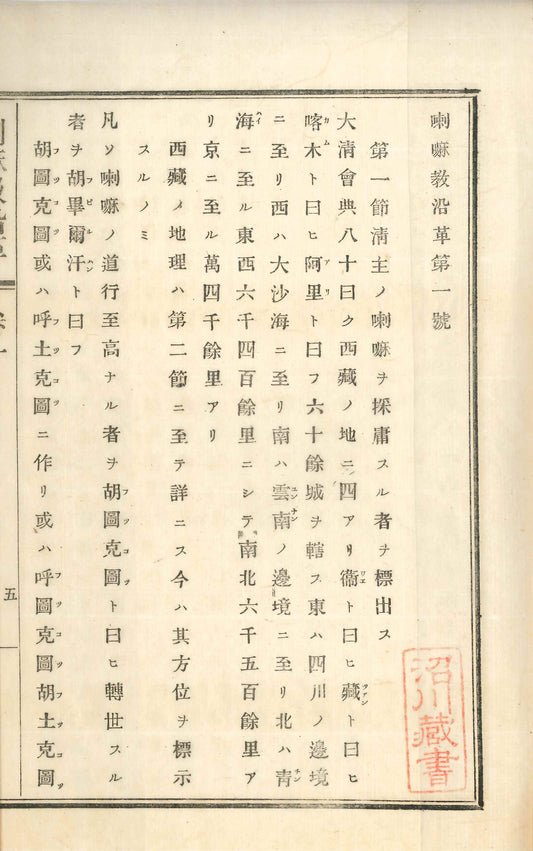 喇嘛教沿革第一號
第一節淸主ノ喇嘛ヲ採庸スル者ヲ標出ス
大清會典八十曰ク西藏ノ地ニ四アリ衞ト曰ヒ藏ト曰ヒ
喀木ト曰ヒ阿里ト曰フ六十餘城ヲ轄ス東ハ四川ノ邊境
ニ至リ西ハ大沙海ニ至リ南ハ雲南ノ邊境ニ至リ北ハ靑
海ニ至ル東西六千四百餘里ニシテ南北六千五百餘里ア
リ京ニ至ル萬四千餘里アリ
西藏ノ地理ハ第二節ニ至テ詳ニス今ハ其方位ヲ標示
スルノミ
凡ソ喇嘛ノ道行至高ナル者ヲ胡圖克圖ト曰ヒ轉世スル
者ヲ胡畢爾汗ト曰フ
胡圖克圖或ハ呼土克圖ニ作リ或ハ呼圖克圖胡土克圖
五
沼川藏書